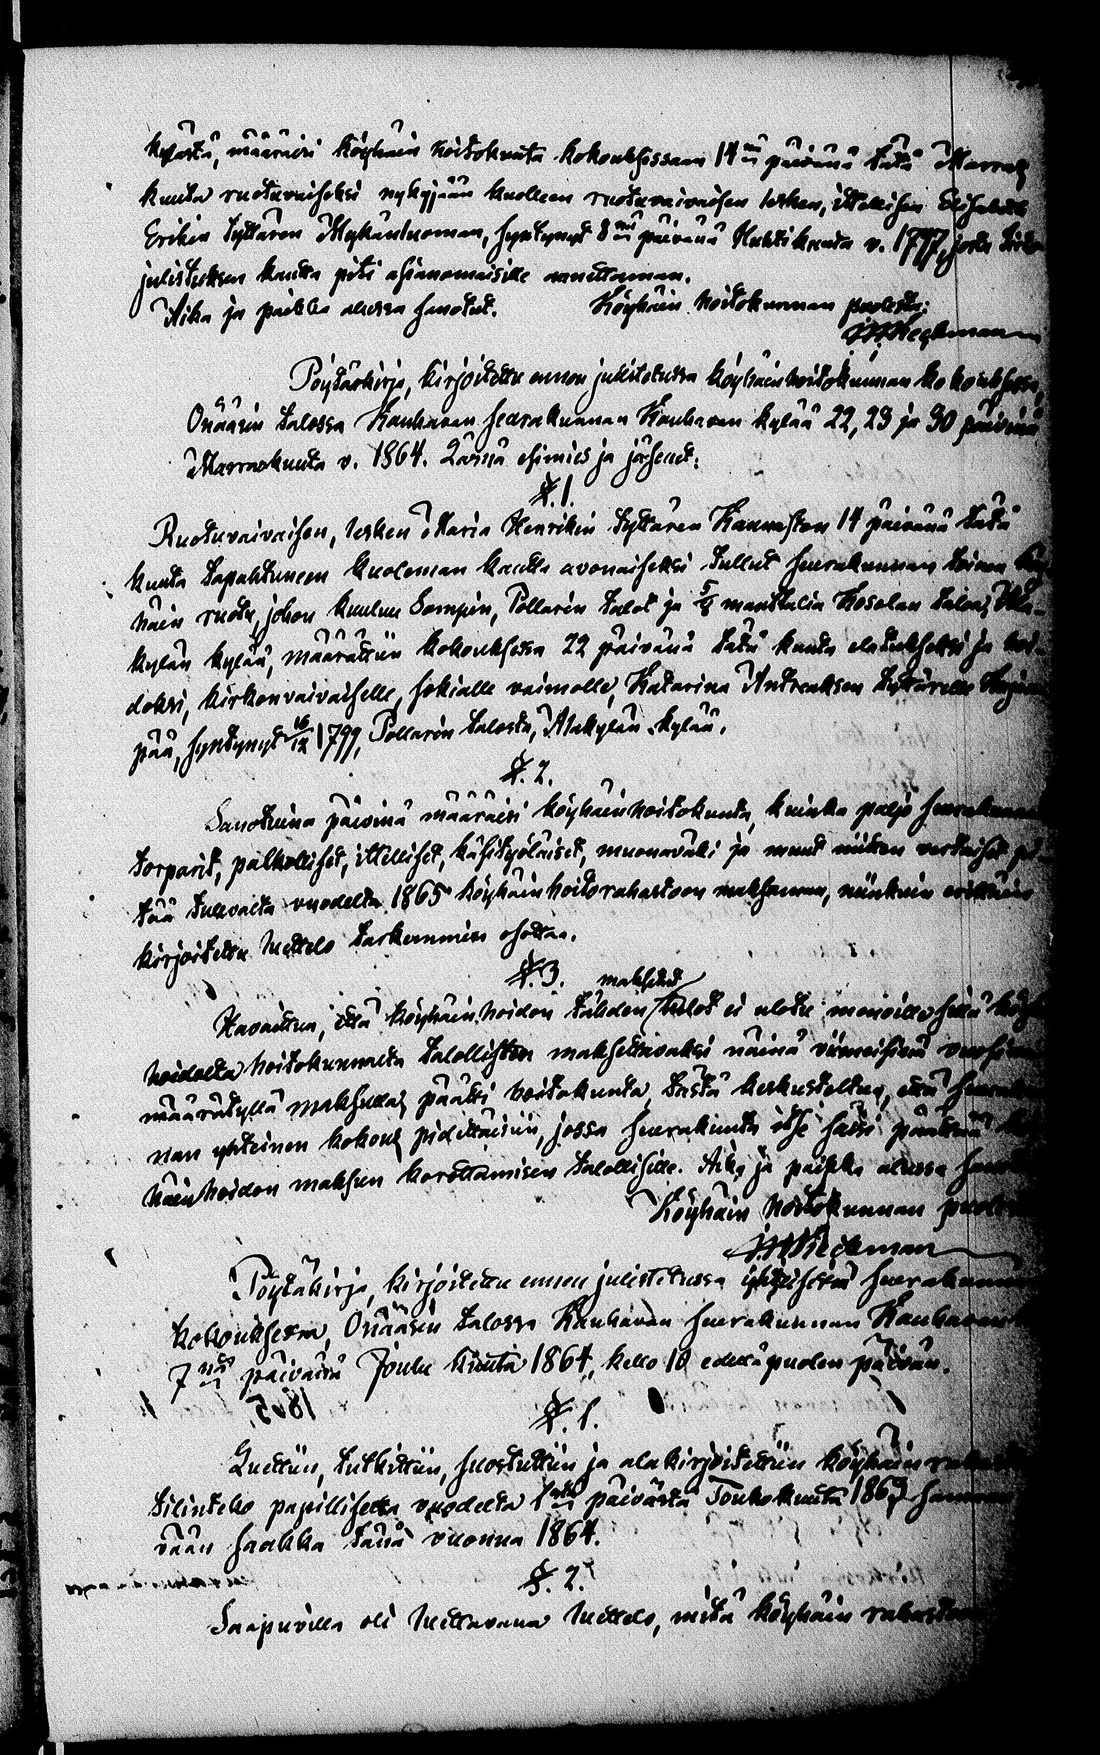 kylästä, määräsi köyhäin hoitokunta kokouksessaan 14 nä päivänä tätä Marras
kuuta ruotuvaiseksi nykyjään kuolleen ruotuvaivaisen lesken, itsellisen Elisabeth
Erikin tyttären syntynyt 8 nä päivänä Huhtikuuta v. 1777, josta
julistuksen kautta piti asianomaisille annettaman.
Aika ja paikka alussa sanotut. Köyhäin hoitokunnan puolesta:
Pöytäkirja, kirjoitettu ennen julistetussa köyhäinhoitokunnan kokouksessa,
Onäärin talossa Kauhavan seurakunnan Kauhavan kylää 22, 23 ja 30 päivinä
Marraskuuta v. 1864. Läsnä esimies ja jäsenet:
§. 1.
Ruotuvaivaisen, lesken Maria Henrikin tyttären 14 päivänä tätä
kuuta tapahtuneen kuoleman kautta avonaiseksi tullut seurakunnan toinen
häin ruotu, johon kuuluu Sompin, Pollarin talot ja manttalia Kosolan taloa, Ala-
kylän kylää, määrättiin kokouksessa 22 päivänä tätä kuuta elatukseksi ja hoi-
doksi, kirkonvaivaiselle, sokialle vaimolle, Katarina Antreaksen tyttärelle
pää, syntynyt 16/12 1799, Pollarin talosta, Alakylän kylää.
§. 2.
Sanottuina päivinä määräsi köyhäinhoitokunta, kuinka paljo seurakunnan
torparit, palkolliset, itselliset, käsityöläiset, muonaväki ja muut niitten vertaiset pi-
tää tulevalta vuodelta 1865 köyhäinhoitorahastoon maksaman, niinkuin erittäin
kirjoitettu luettelo tarkemmin osottaa.
§. 3.
Havaittua, että köyhäinhoidon tähden maksetut tulot ei ulotu menoille, sillä
hoidolta hoitokunnalta talollisten maksettavaksi näinä viimeisinä vuosina
määrätyllä maksulla, päätti hoitokunta, tästä keskusteltua, että seurakun
nan yhteinen kokous pidettäisiin, jossa seurakunta itse saisi päättää
häinhoidon maksun korottamisen talollisille. Aika ja paikka alussa
Köyhäin hoitokunnan puolesta
Pöytäkirja, kirjoitettu ennen julistetussa yhteisessä seurakunnan
kokouksessa, Onäärin talossa Kauhavan seurakunnan Kauhavan
7 nä päivänä Joulu kuuta 1864, kello 10 edellä puolen päivän.
§. 1.
Luettiin, tutkittiin, suostuttiin ja alakirjoitettiin köyhäin
tilinteko papillisetta vuodelta 1 stä päivästä Toukokuuta 1863
vään saakka tänä vuonna 1864.
§. 2.
Saapuvilla oli luettavana luettelo, mitä köyhäin